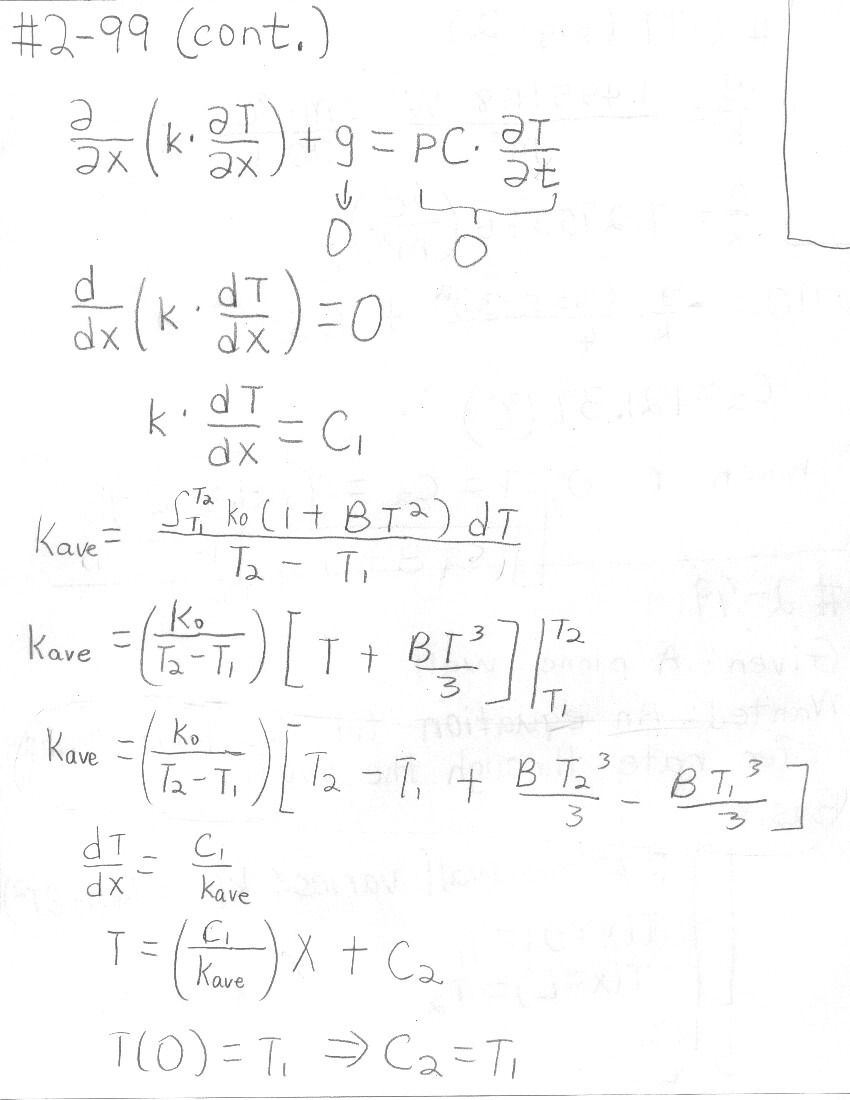 #2-99 (cont.)
∂/∂x (k · ∂T/∂x) + g = ρC · ∂T/∂t
↓ 0 0
d/dx (k · dT/dx) = 0
k · dT/dx = C₁
Kave = ∫_T₁^T₂ k₀ (1 + BT²) dT / (T₂ - T₁)
Kave = (K₀/(T₂-T₁)) [T + BT³/3] |_T₁^T₂
Kave = (k₀/(T₂-T₁)) [T₂ - T₁ + BT₂³/3 - BT₁³/3]
dT/dx = C₁/Kave
T = (C₁/Kave) X + C₂
T(0) = T₁ ⇒ C₂ = T₁